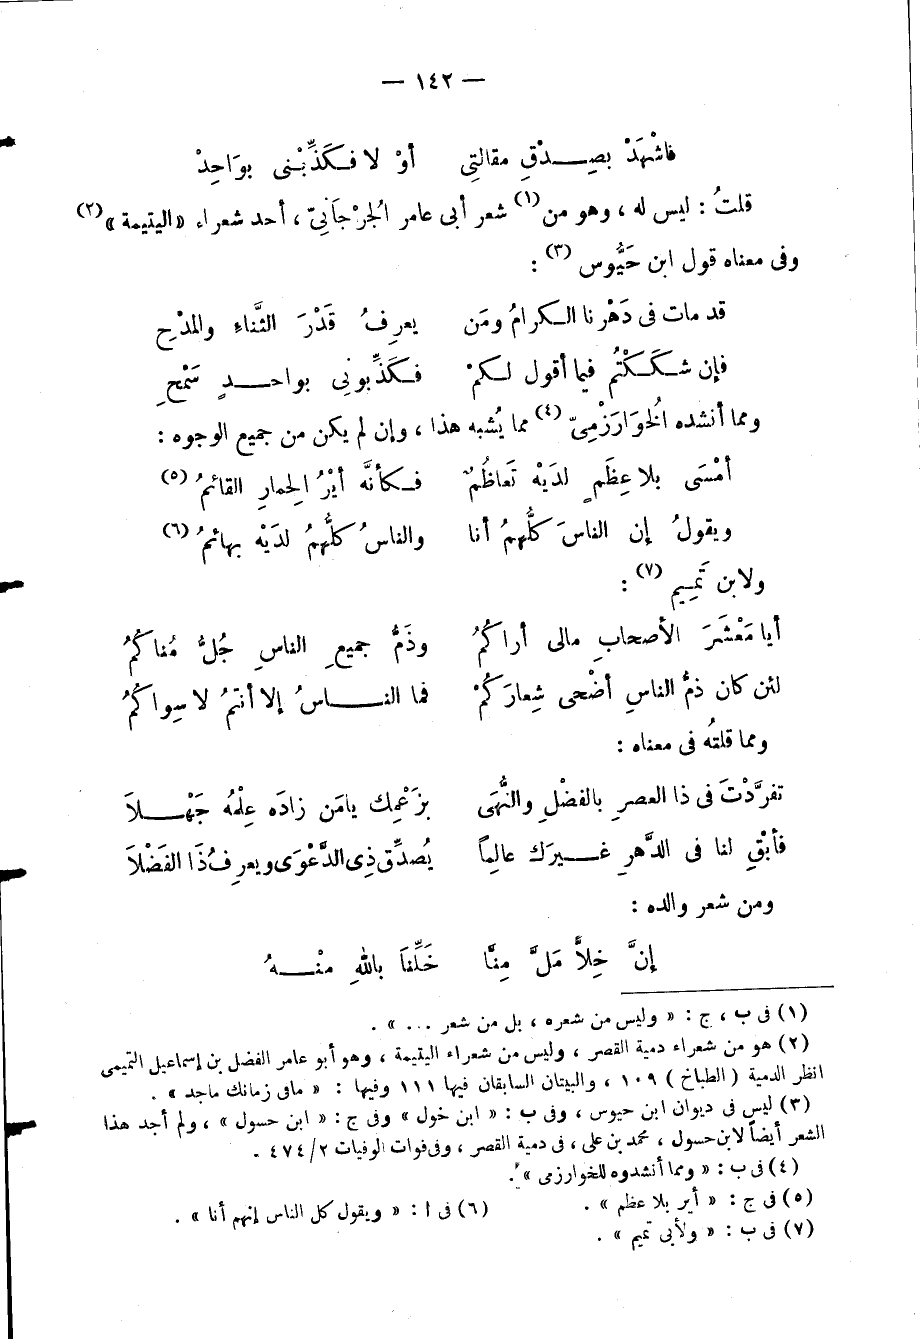 — ١٤٢ —
فاشْهَدْ بصِـــدْقِ مقالتِى أوْ لا فـكَذِّبْـنى بوَاحِدْ
قلتُ : ليس له ، وهو من (١) شعر أبى عامر الجُرْجَانِىّ ، أحد شعراء «اليتيمة» (٢)
وفى معناه قول ابن حَيُّوس (٣) :
قد مات فى دَهْرنا الـكرامُ ومَن يعرِفُ قَدْرَ الثَّناءِ والمَدْحِ
فإن شـكَـكْتُم فيما أقول لـكمْ فـكَذِّبونِى بواحـــدٍ سَمْحِ
ومما أنشده الُخوَارَزْمِىّ (٤) مما يُشبه هذا ، وإن لم يكن من جميع الوجوه :
أمْسَى بلا عِظَمٍ لدَيْه تَعاظُمٌ فـكأنَّه أيْرُ الِحمارِ القائمُ (٥)
ويقولُ إن الناسَ كلَّهمُ أنا والناسُ كلُّهمُ لدَيْه بهائمُ (٦)
ولابن تَمِيم (٧) :
أيا مَعْشَرَ الأصحابِ مالى أراكمُ وذَمُّ جميعِ الناسِ جُلُّ مُناكمُ
لئن كان ذمُّ الناسِ أضْحى شِعارَكمْ فما النـــاسُ إلا أنتمُ لا سِواكمُ
ومما قلتُه فى معناه :
تفرَّدْتَ فى ذا العصرِ بالفضْلِ والنُّهَى بزَعْمِك يامَن زادَه عِلْمُه جَهْـــلاَ
فأبْقِ لنا فى الدَّهرِ غـــيرَك عالِماً يُصدِّق ذِى الدَّعْوَى ويعرِفُ ذَا الفَضْلاَ
ومن شعر والده :
إنَّ خِلاًّ مَلَّ مِنَّا خَلِّنَا باللهِ منْـــهُ
(١) فى ب ، ج : « وليس من شعره ، بل من شعر ... » .
(٢) هو من شعراء دمية القصر ، وليس من شعراء اليتيمة ، وهو أبو عامر الفضل بن إسماعيل التميمى
انظر الدمية ( الطباخ ) ١٠٩ ، والبيتان السابقان فيها ١١١ وفيها : « مافى زمانك ماجد » .
(٣) ليس فى ديوان ابن حيوس ، وفى ب : « ابن خول » وفى ج : « ابن حسول » ، ولم أجد هذا
الشعر أيضاً لابن حسول ، محمد بن على ، فى دمية القصر ، وفى فوات الوفيات ٢/٤٧٤ .
(٤) فى ب : « ومما أنشدوه للخوارزمى » .
(٥) فى ج : « أير بلا عظم » . (٦) فى ا : « ويقول كل الناس إنهم أنا » .
(٧) فى ب : « ولأبى تميم » .